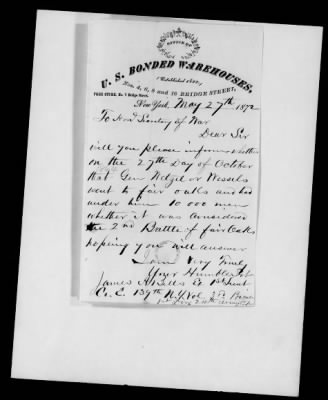 OFFICE OF
U. S. BONDED WAREHOUSES,
Nos. 4, 6, 8 and 10 BRIDGE STREET,
New York, May 27th 1872
To Hon Secretary of War
Dear Sir
will you please inform whether
on the 27th Day of October
that Gen Wetzel or Wessels
went to fair oaks and had
under him 10 000 men
whether it was considered
the 2nd Battle of fair Oaks
hoping you will answer
I am Very Truly
Your Humble
James
Co. C. 139th N.Y. Vol